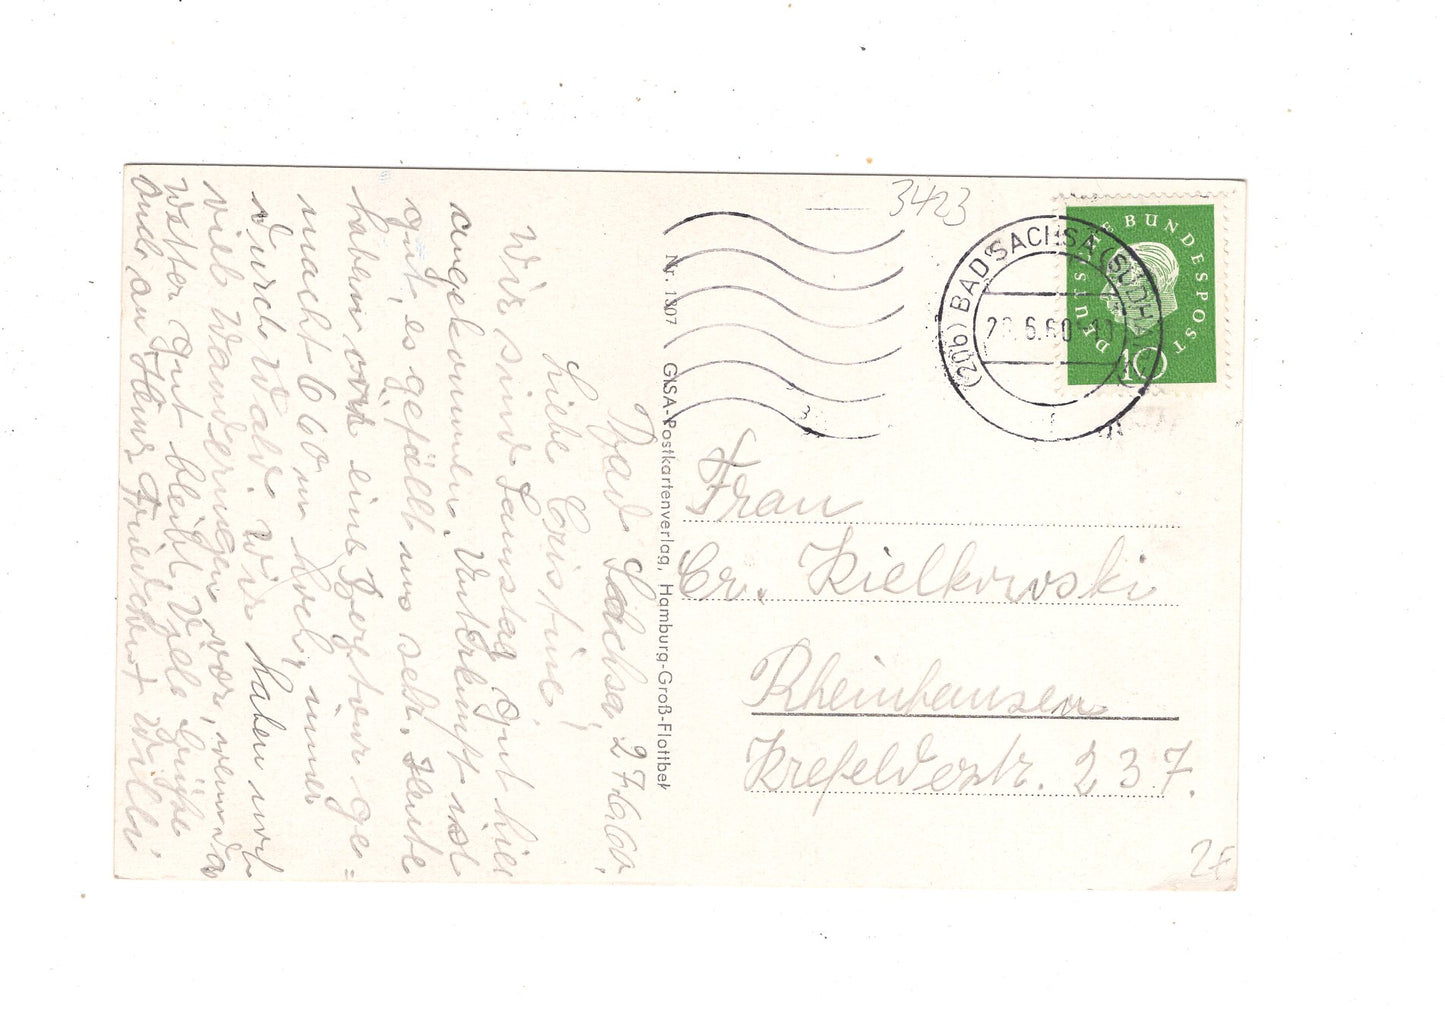 Bad Sachsa 27.6.60.
Liebe Cristine!
Wir sind Samstag gut hier
angekommen. Unterkunft ist
gut, es gefällt uns sehr. Heute
haben wir eine Bergtour ge=
macht 660 m hoch, immer
durch Wald. Wir haben noch
viele Wanderungen vor, wenn das
Wetter gut bleibt. Viele Grüße
auch an Hans, Friedchen + Willi
Nr. 1307 GISA-Postkartenverlag, Hamburg-Groß-Flottbek
3423
(20b) BAD SACHSA (SÜDHARZ)
.6.60
DEUTSCHE BUNDESPOST
10
Frau
Cr. Kielkowski
Rheinhausen
Krefelderstr. 237.